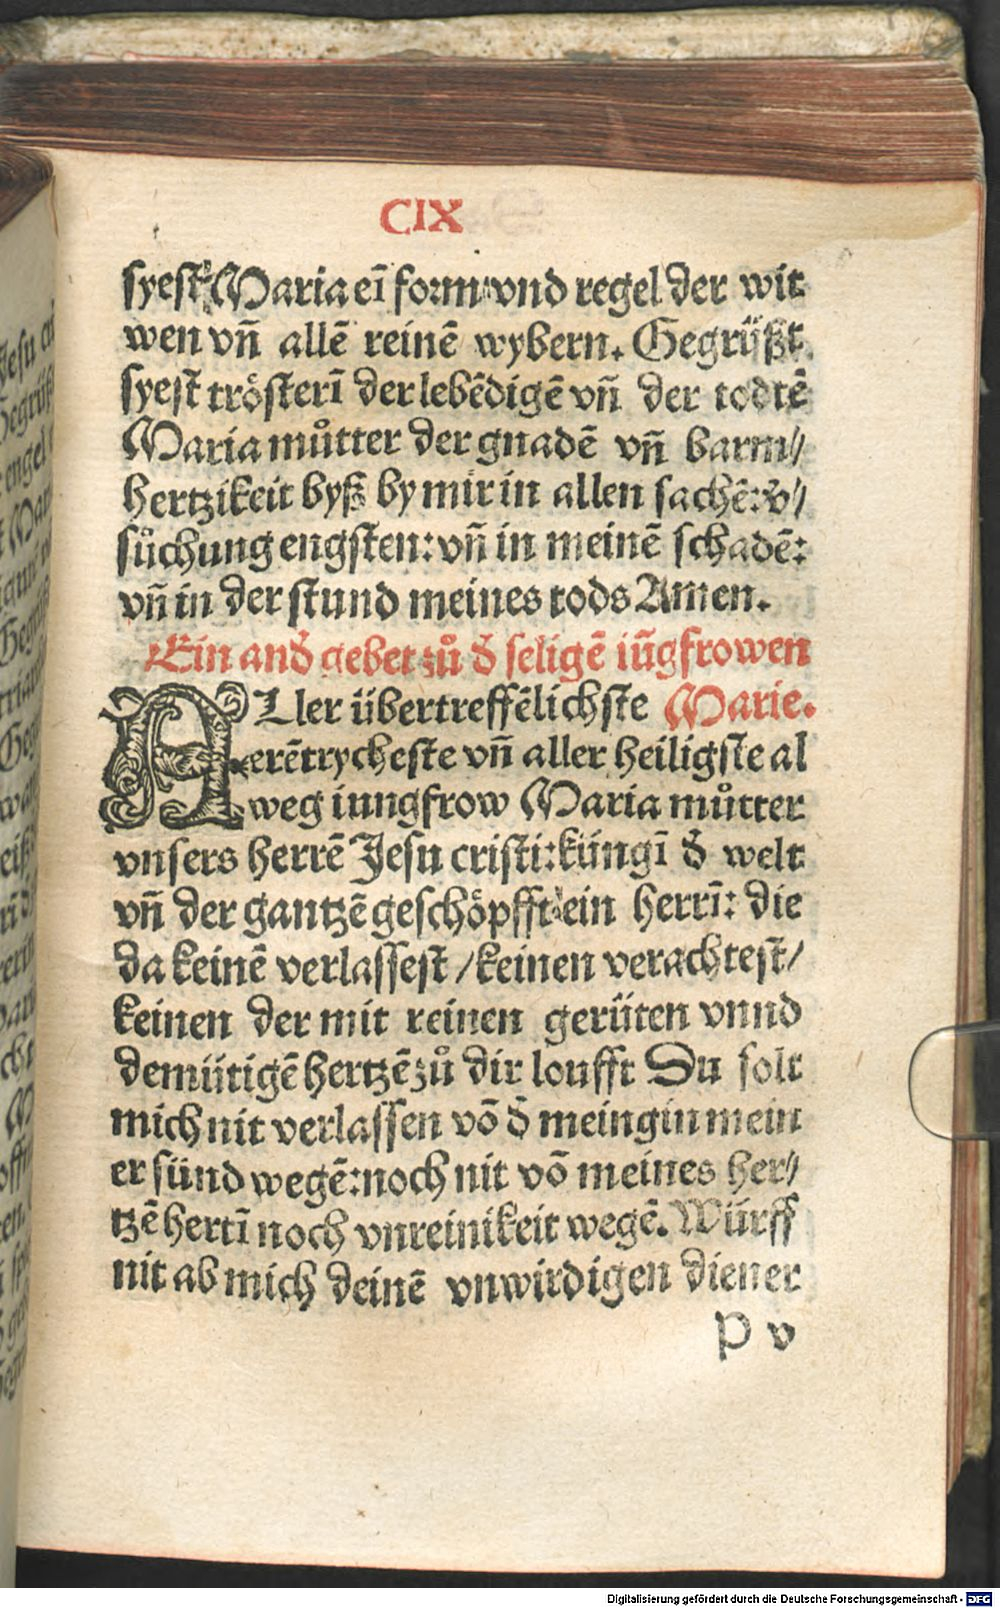 CIX
syest Maria eī form vnd regel der wit
wen vñ allē reinē wybern. Gegrüßt
syest trösterī der lebēdigē vñ der todtē
Maria můtter der gnadē vñ barm⸗
hertzikeit byß by mir in allen sachē: v̄⸗
sůchung engsten: vñ in meinē schadē:
vñ in der stund meines tods Amen.
Ein and̄ gebet zů d̄ seligē iūgfrowen
ALler übertreffēlichste Marie.
erētrycheste vñ aller heiligste al
weg iungfrow Maria můtter
vnsers herrē Jesu cristi: küngī d̄ welt
vñ der gantzē geschöpfft ein herrī: die
da keinē verlassest / keinen verachtest /
keinen der mit reinen gerüten vnnd
demütigē hertzē zů dir loufft Du solt
mich nit verlassen vō d̄ meingin mein
er sünd wegē: noch nit vō meines her⸗
tzē hertī noch vnreinikeit wegē. Würff
nit ab mich deinē vnwirdigen diener
P v
Digitalisierung gefördert durch die Deutsche Forschungsgemeinschaft - DFG